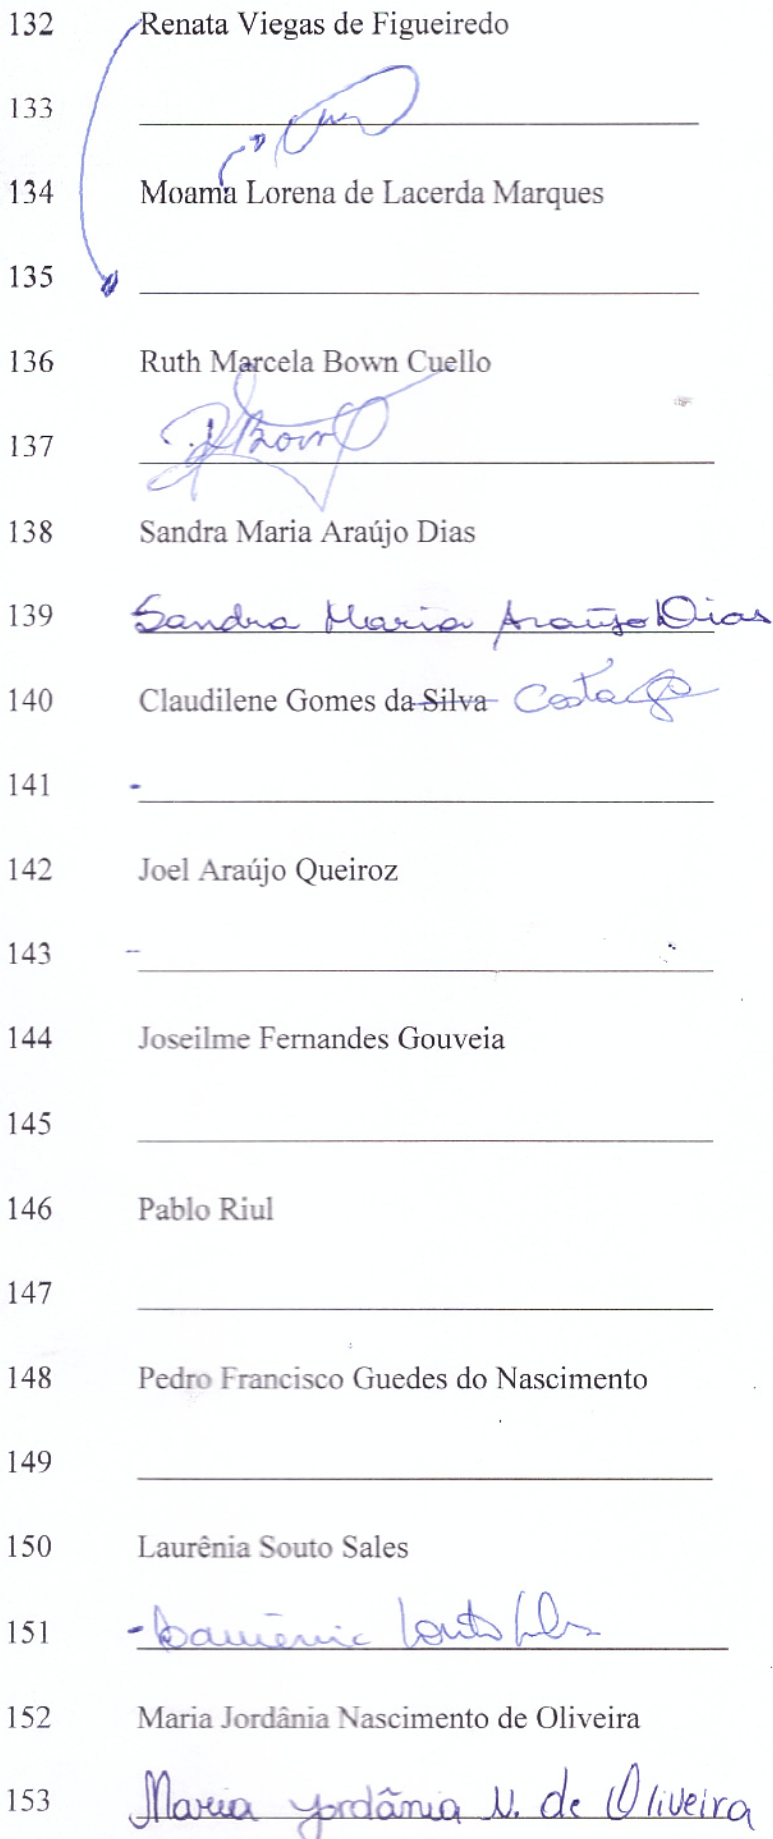 132 Renata Viegas de Figueiredo
133
134 Moama Lorena de Lacerda Marques
135
136 Ruth Marcela Bown Cuello
137 Bown
138 Sandra Maria Araújo Dias
139 Sandra Maria Araújo Dias
140 Claudilene Gomes da Silva Costa
141
142 Joel Araújo Queiroz
143
144 Joseilme Fernandes Gouveia
145
146 Pablo Riul
147
148 Pedro Francisco Guedes do Nascimento
149
150 Laurênia Souto Sales
151 Laurênia Souto Sales
152 Maria Jordânia Nascimento de Oliveira
153 Maria Jordânia N. de Oliveira